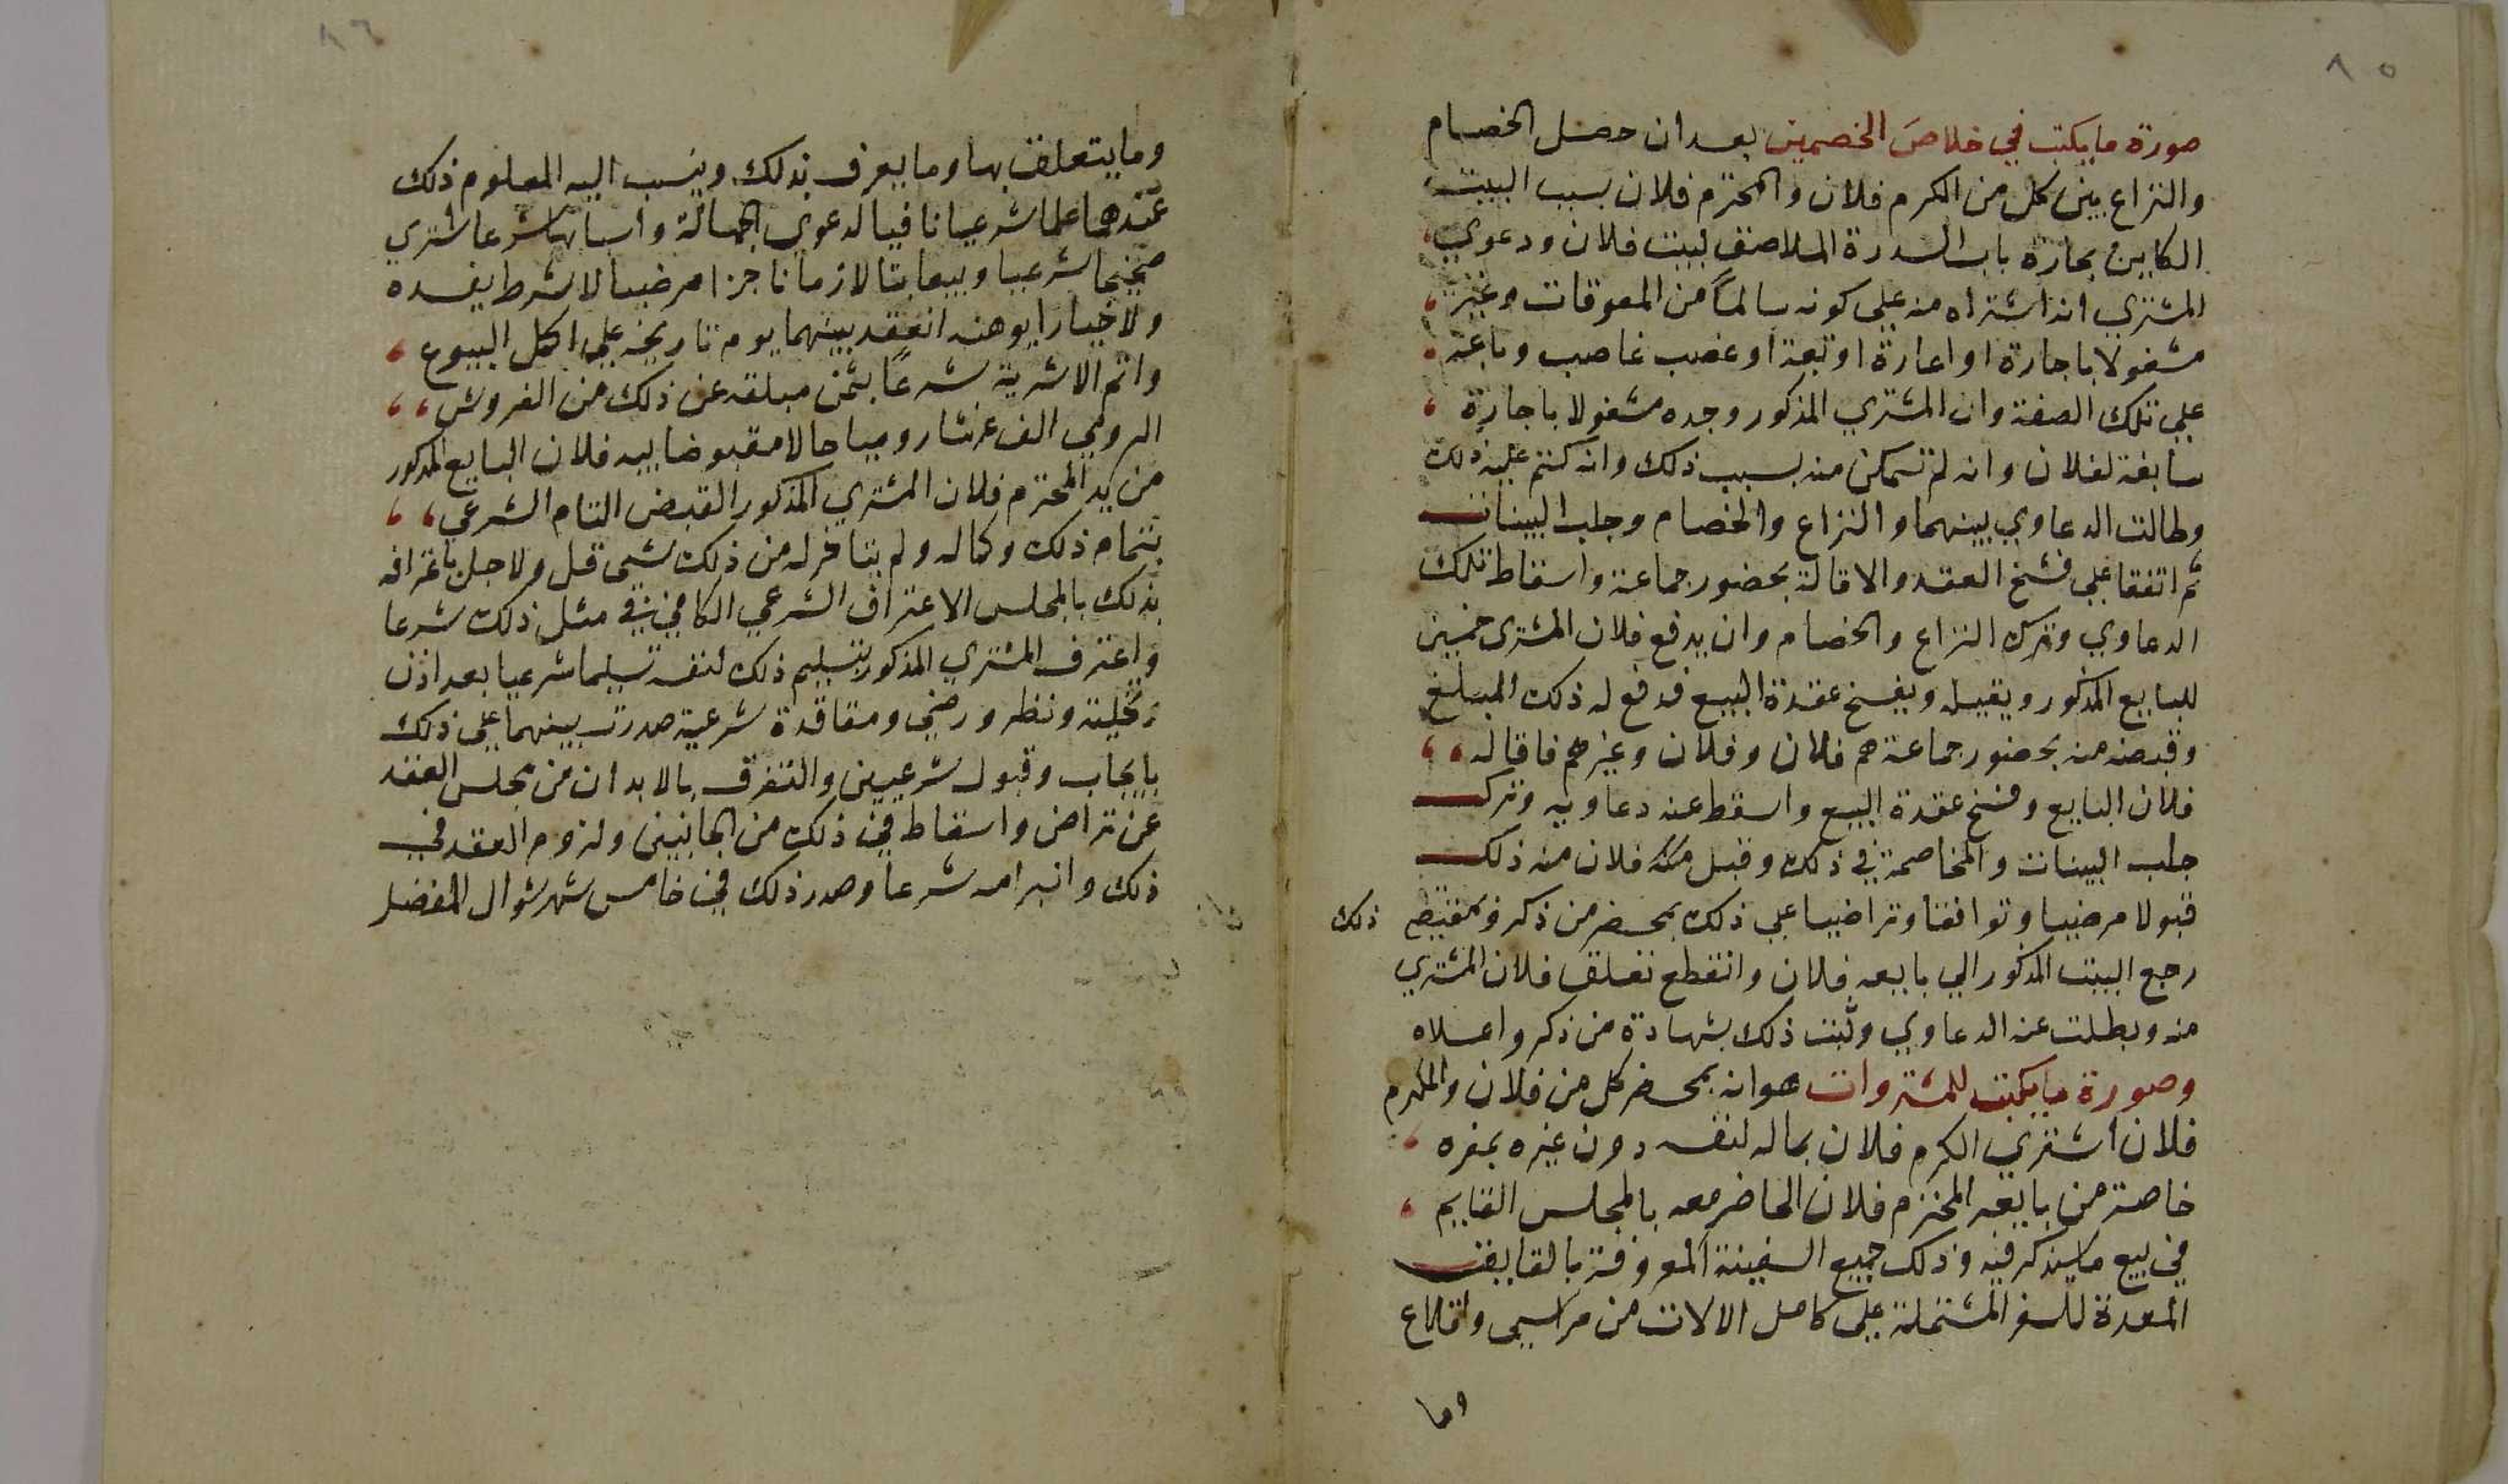 ٨٥
صورة ما يكتب في خلاص الخصمين بعد ان حصل الخصام
والنزاع بين كل من المكرم فلان والمحترم فلان بسبب البيت
الكاين بحارة باب السدرة الملاصق لبيت فلان ودعوي
المشتري انه اشتراه منه علي كونه سالماً من المعوقات وغير
مشغولا باجارة او اعارة او تبعة او غصب غاصب وباعه
علي تلك الصفة وان المشتري المذكور وجده مشغولا باجارة
سابقة لفلان وانه لم تمكن منه بسبب ذلك وانه كتم عليه ذلك
وطالت الدعاوي بينهما والنزاع والخصام وجلب البينات
ثم اتفقا علي فسخ العقد والاقالة بحضور جماعة واسقاط تلك
الدعاوي وترك النزاع والخصام وان يدفع فلان المشتري خمسين
للبايع المذكور ويقيله ويفسخ عقدة البيع فدفع له ذلك المبلغ
وقبضه منه بحضور جماعة هم فلان وفلان وغيرهم فاقاله
فلان البايع وفسخ عقدة البيع واسقط عنه دعاويه وترك
جلب البينات والمخاصمة في ذلك وقبل منه فلان منه ذلك
قبولا مرضيا وتوافقا وتراضيا علي ذلك بمحضر من ذكر وبمقتضي ذلك
رجع البيت المذكور الي بايعه فلان وانقطع تعلق فلان المشتري
منه وبطلت عنه الدعاوي وثبت ذلك بشهادة من ذكر واعلاه
وصورة ما يكتب للمشتروات هو انه بمحضر كل من فلان والمكرم
فلان اشتري المكرم فلان بماله لنفسه دون غيره بمفره
خاصة من بايعه المحترم فلان الحاضر معه بالمجلس القايم
في بيع ما سيذكر فيه وذلك جميع السفينة المعروفة بالقايق
المعدة للسفر المشتملة علي كامل الالات من مراسي واقلاع
وما
٨٦
وما يتعلق بها وما يعرف بذلك وينسب اليه المعلوم ذلك
عندهما علما شرعيا نافيا لدعوي الجهالة واسبابها شرعا اشتري
صحيحا شرعيا وبيعا بتا لازما ناجزا مرضيا لا شرط يفسده
ولا خيارا يوهنه انعقد بينهما يوم تاريخه علي اكمل البيوع
واتم الاشرية شرعاً بثمن مبلغه عن ذلك من القروش
الرومي الف غرشا روميا حالا مقبوضا بيد فلان البايع المذكور
من يد المحترم فلان المشتري المذكور القبض التام الشرعي
بتمام ذلك وكماله ولم يتاخر له من ذلك شي قل ولا جل باعترافه
بذلك بالمجلس الاعتراف الشرعي الكافي في مثل ذلك شرعا
واعترف المشتري المذكور بتسليم ذلك لنفسه تسليما شرعيا بعد اذن
وتخلية ونظر ورضي ومعاقدة شرعية صدرت بينهما علي ذلك
بايجاب وقبول شرعيين والتفرق بالابدان من مجلس العقد
عن تراض واسقاط في ذلك من الجانبين ولزوم العقد في
ذلك وانبرامه شرعا وصدر ذلك في خامس شهر شوال المفضل